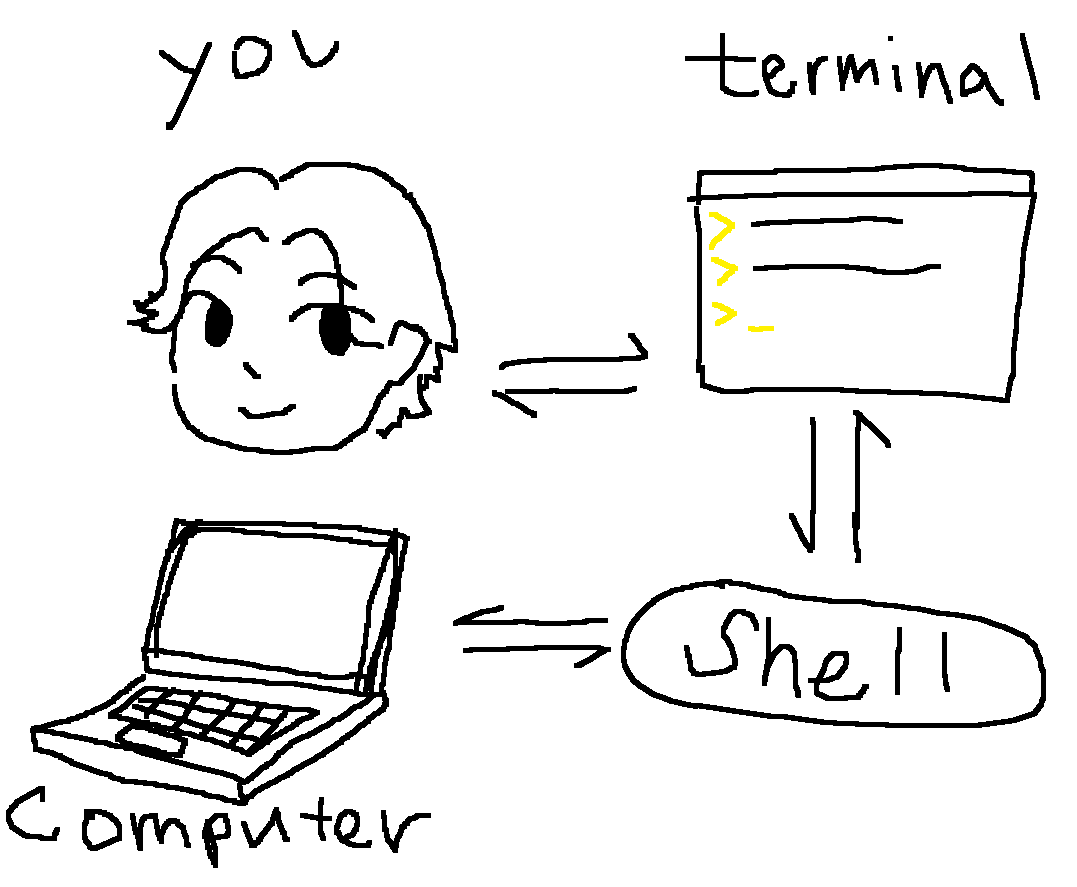 you
terminal
>
>
>_
Shell
Computer